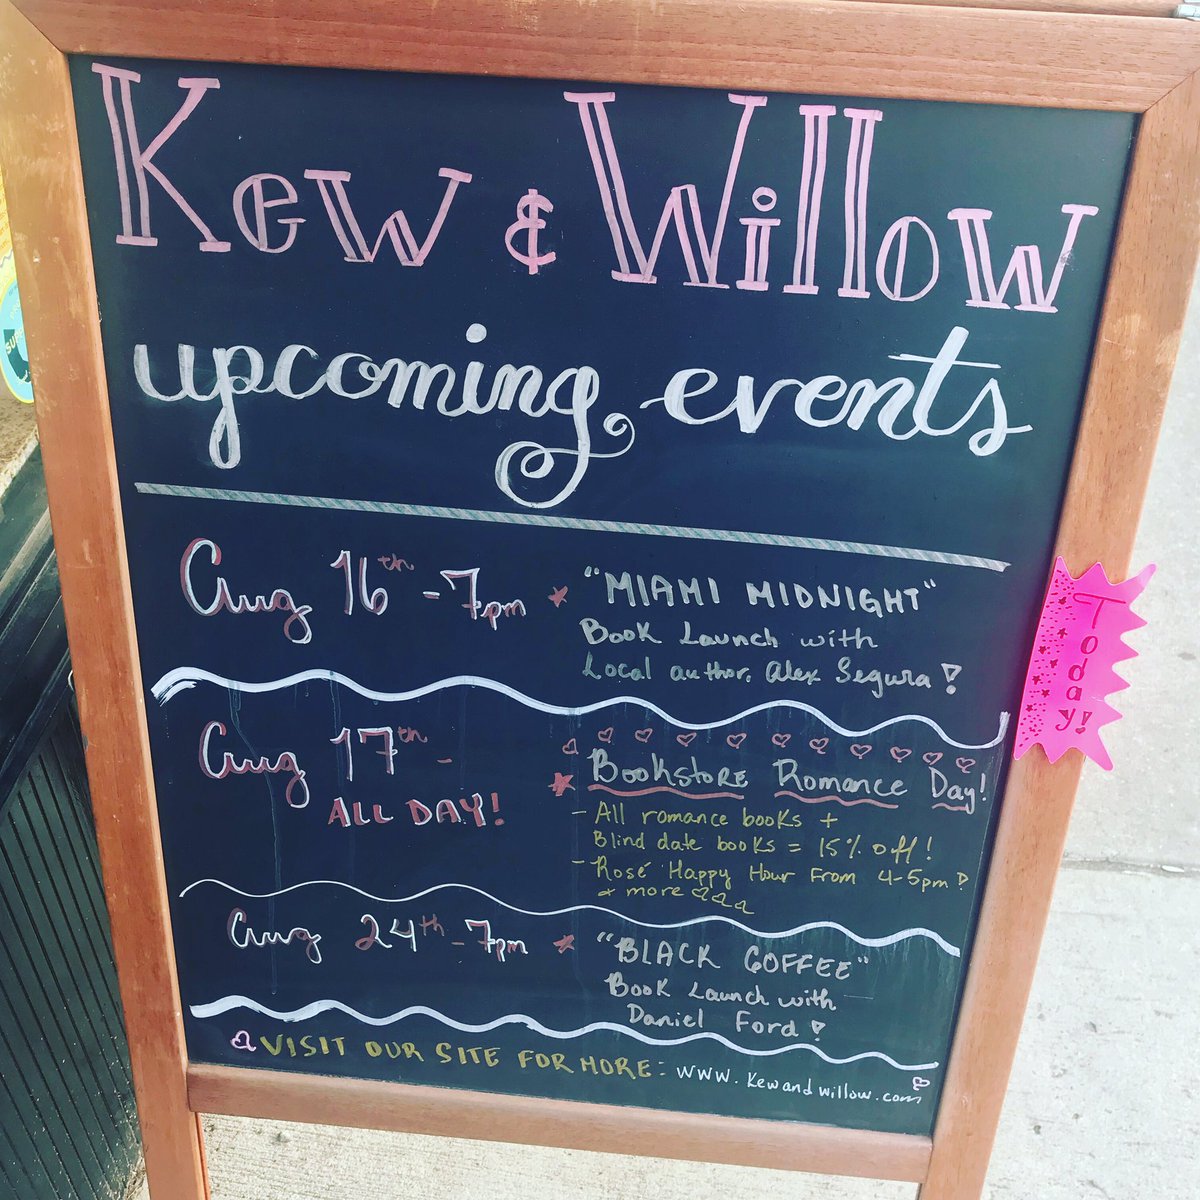 Kew & Willow
upcoming events
Aug 16th - 7pm
"MIAMI MIDNIGHT"
Book Launch with
Local author, Alex Segura!
Today!
Aug 17th -
ALL DAY!
Bookstore Romance Day!
- All romance books +
Blind date books = 15% off!
- Rosé Happy Hour From 4-5pm!
+ more
Aug 24th - 7pm
"BLACK COFFEE"
Book Launch with
Daniel Ford!
VISIT OUR SITE FOR MORE: www.kewandwillow.com